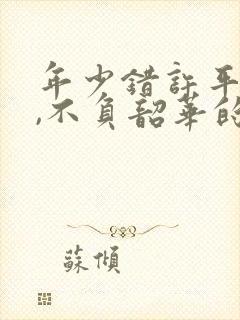 年少错许平
,不负韶华的
蘇傾